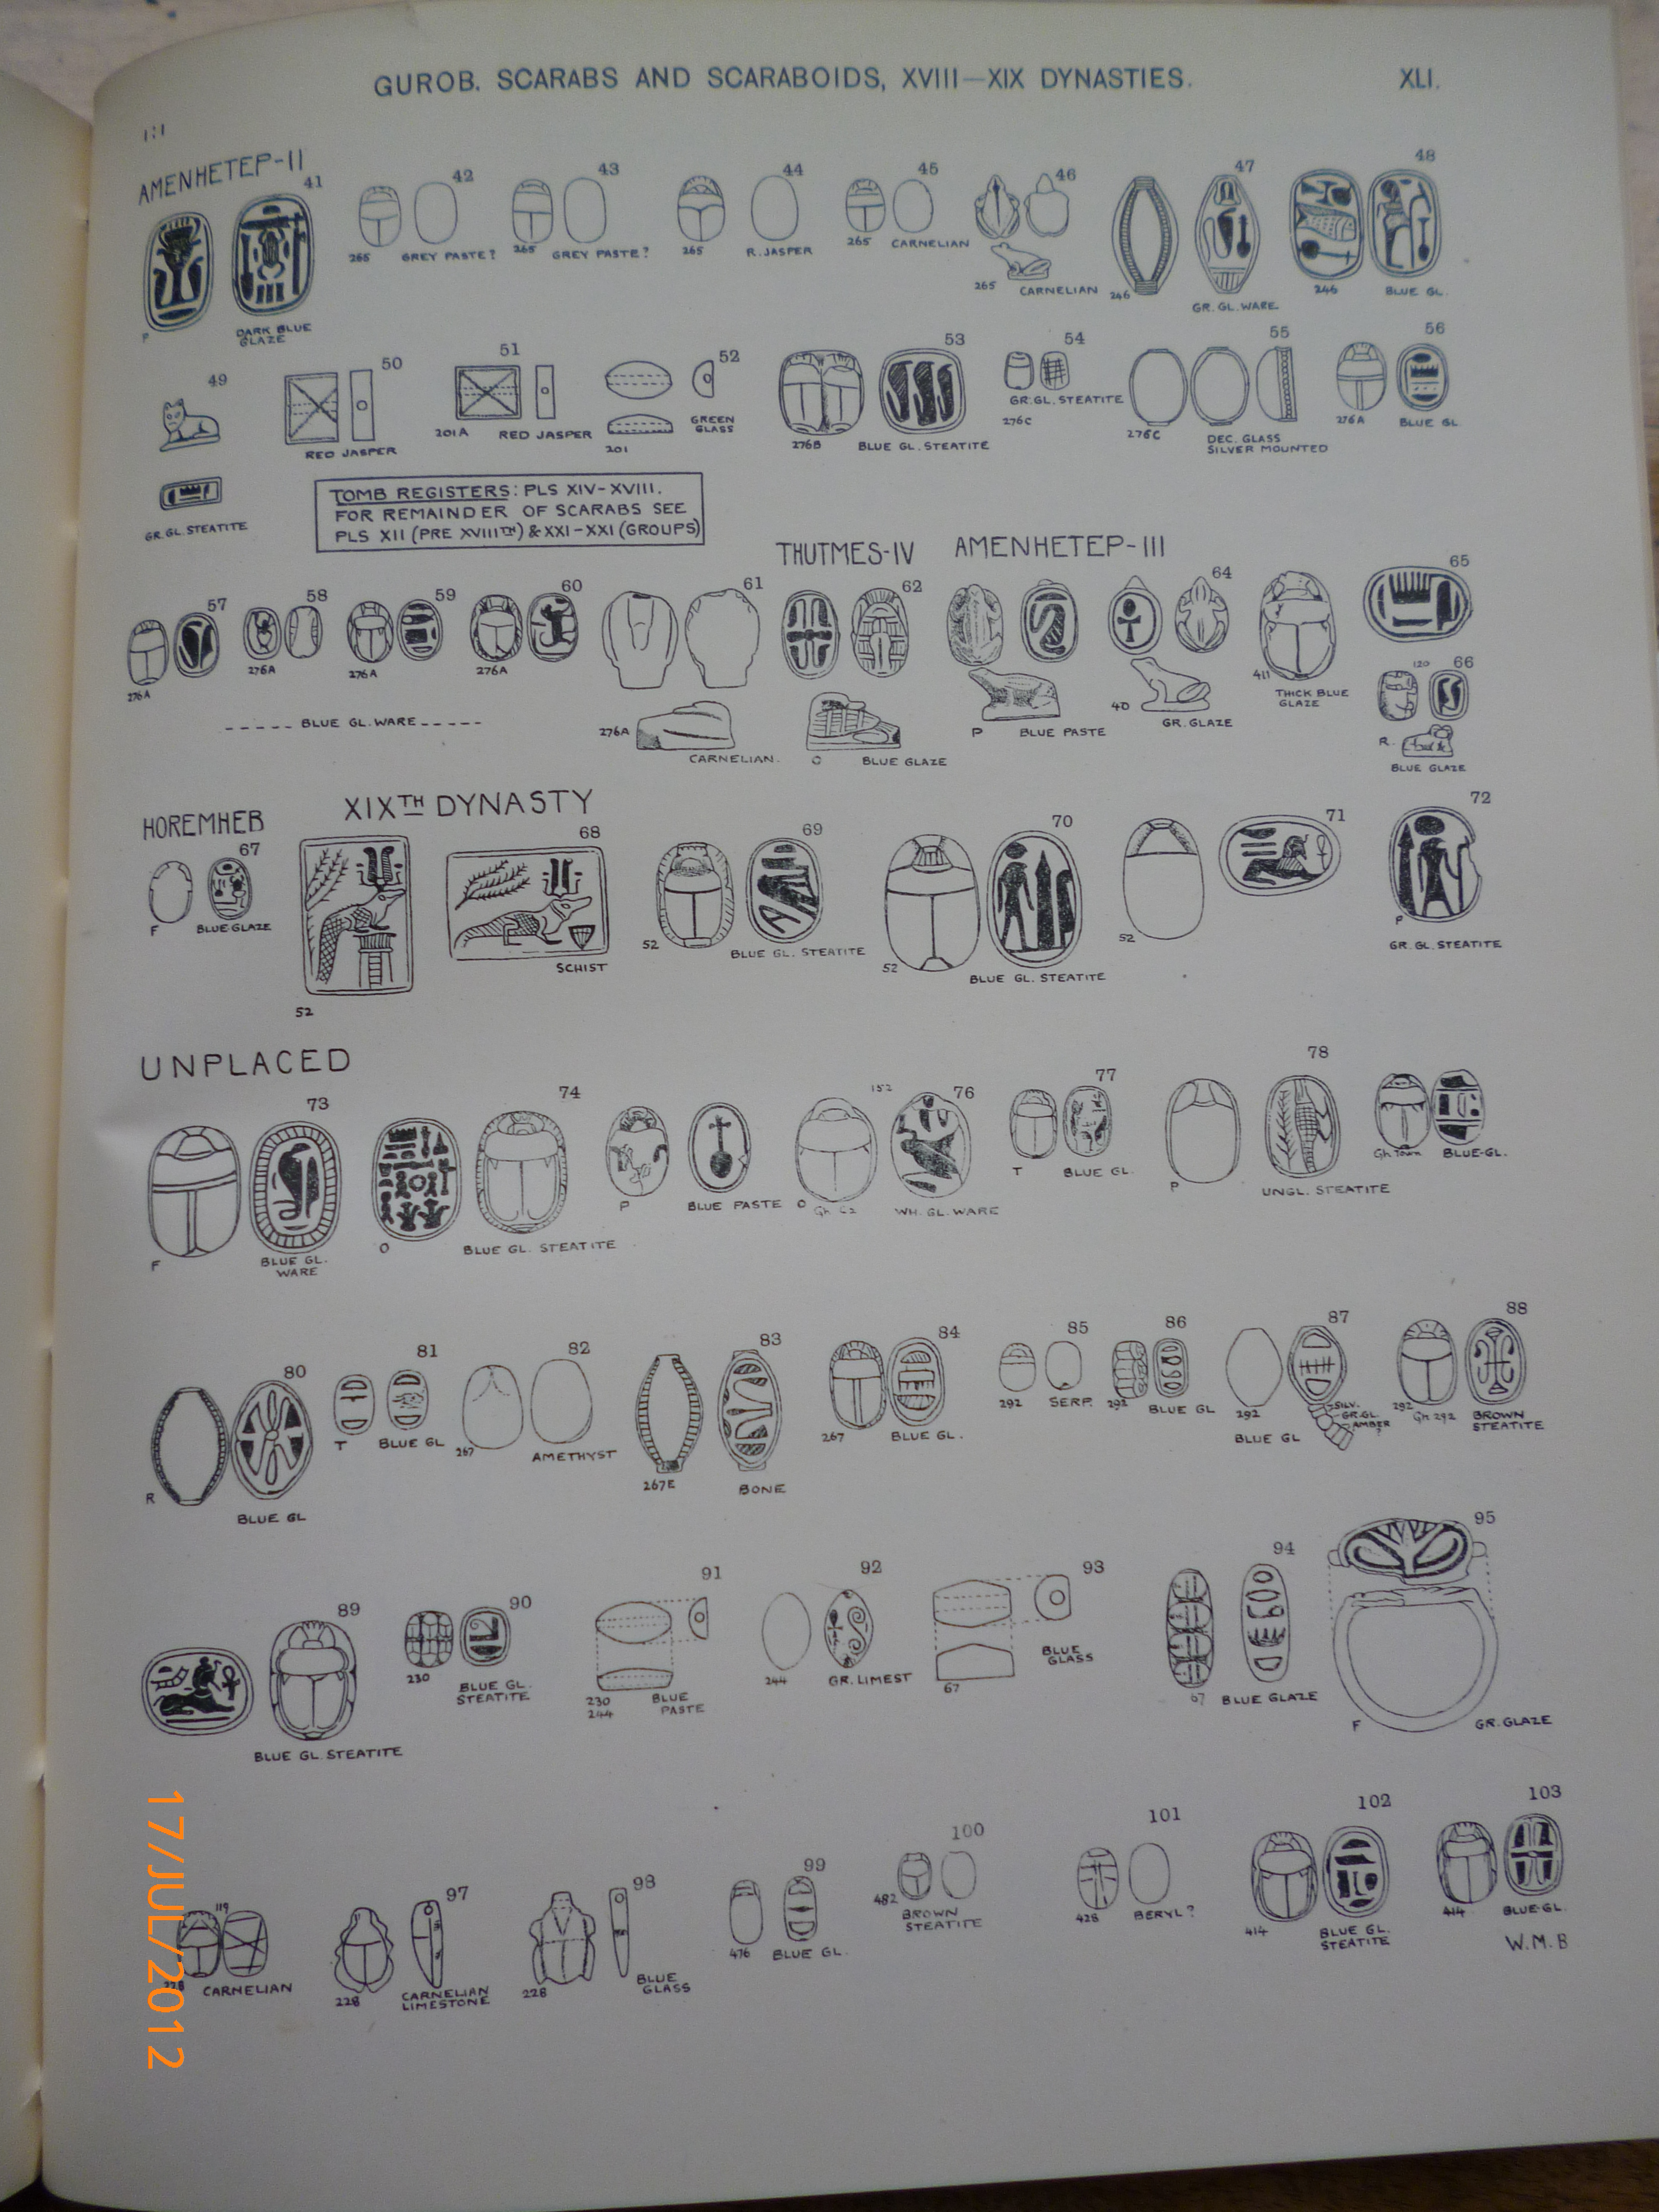 GUROB. SCARABS AND SCARABOIDS, XVIII—XIX DYNASTIES. XLI.
1:1
AMENHETEP-II
41 42 43 44 45 46 47 48
265 GREY PASTE? 265 GREY PASTE? 265 R. JASPER 265 CARNELIAN
265 CARNELIAN 246 GR. GL. WARE. 246 BLUE GL.
P DARK BLUE
GLAZE
49 50 51 52 53 54 55 56
RED JASPER 201A RED JASPER 201 GREEN
GLASS
276B BLUE GL. STEATITE GR. GL. STEATITE
276C 276C DEC. GLASS
SILVER MOUNTED
276A BLUE GL.
GR. GL. STEATITE
TOMB REGISTERS: PLS XIV-XVIII.
FOR REMAINDER OF SCARABS SEE
PLS XII (PRE XVIIITH) & XXI-XXI (GROUPS)
THUTMES-IV AMENHETEP-III
57 58 59 60 61 62 64 65
276A 276A 276A 276A
BLUE GL. WARE
276A CARNELIAN. O BLUE GLAZE P BLUE PASTE 40 GR. GLAZE 411 THICK BLUE
GLAZE
120 66
R. BLUE GLAZE
HOREMHEB XIXTH DYNASTY
67 68 69 70 71 72
F BLUE GLAZE 52 SCHIST 52 BLUE GL. STEATITE 52 BLUE GL. STEATITE 52 P GR. GL. STEATITE
UNPLACED
73 74 152 76 77 78
F BLUE GL.
WARE
O BLUE GL. STEATITE P BLUE PASTE O WH. GL. WARE T BLUE GL. P UNGL. STEATITE Gh Town BLUE-GL.
80 81 82 83 84 85 86 87 88
R BLUE GL T BLUE GL 267 AMETHYST 267E BONE 267 BLUE GL. 292 SERP. 292 BLUE GL 292 BLUE GL
SILV.
GR.GL.
AMBER?
292 Gh 292 BROWN
STEATITE
89 90 91 92 93 94 95
BLUE GL. STEATITE 230 BLUE GL.
STEATITE
230
244 BLUE
PASTE
244 GR. LIMEST 67 BLUE
GLASS
67 BLUE GLAZE F GR. GLAZE
119 97 98 99 100 101 102 103
228 CARNELIAN 228 CARNELIAN
LIMESTONE
228 BLUE
GLASS
476 BLUE GL. 482 BROWN
STEATITE
428 BERYL? 414 BLUE GL.
STEATITE
414 BLUE-GL.
W.M.B
17/JUL/2012